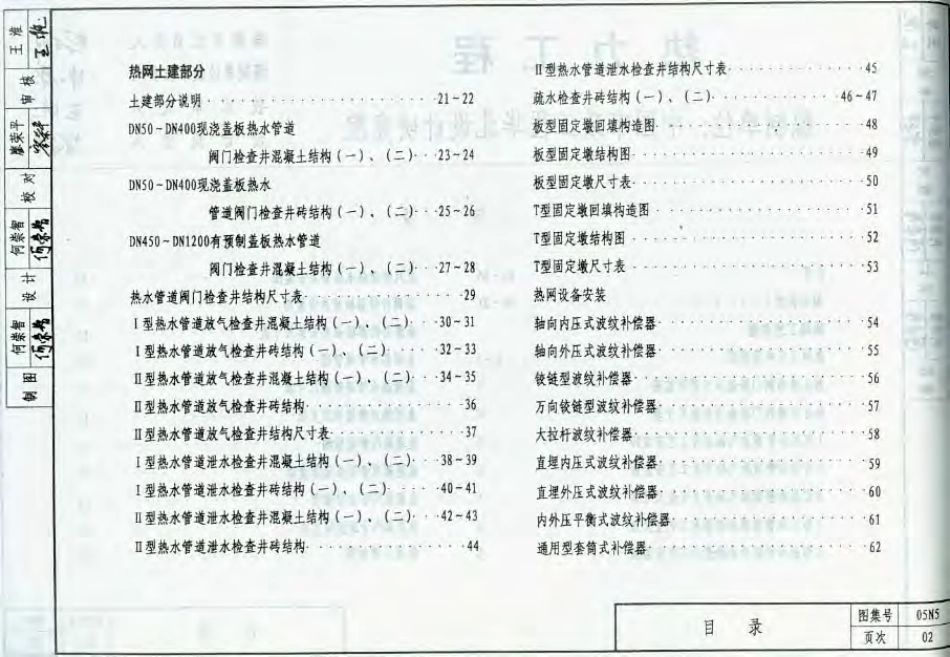 热网土建部分
土建部分说明 21~22
DN50~DN400现浇盖板热水管道
阀门检查井混凝土结构(一)、(二) 23~24
DN50~DN400现浇盖板热水
管道阀门检查井砖结构(一)、(二) 25~26
DN450~DN1200有预制盖板热水管道
阀门检查井混凝土结构(一)、(二) 27~28
热水管道阀门检查井结构尺寸表 29
Ⅰ型热水管道放气检查井混凝土结构(一)、(二) 30~31
Ⅰ型热水管道放气检查井砖结构(一)、(二) 32~33
Ⅱ型热水管道放气检查井混凝土结构(一)、(二) 34~35
Ⅱ型热水管道放气检查井砖结构 36
Ⅱ型热水管道放气检查井结构尺寸表 37
Ⅰ型热水管道泄水检查井混凝土结构(一)、(二) 38~39
Ⅰ型热水管道泄水检查井砖结构(一)、(二) 40~41
Ⅱ型热水管道泄水检查井混凝土结构(一)、(二) 42~43
Ⅱ型热水管道泄水检查井砖结构 44
Ⅱ型热水管道泄水检查井结构尺寸表 45
疏水检查井砖结构(一)、(二) 46~47
板型固定墩回填构造图 48
板型固定墩结构图 49
板型固定墩尺寸表 50
T型固定墩回填构造图 51
T型固定墩结构图 52
T型固定墩尺寸表 53
热网设备安装
轴向内压式波纹补偿器 54
轴向外压式波纹补偿器 55
铰链型波纹补偿器 56
万向铰链型波纹补偿器 57
大拉杆波纹补偿器 58
直埋内压式波纹补偿器 59
直埋外压式波纹补偿器 60
内外压平衡式波纹补偿器 61
通用型套筒式补偿器 62
王淮
审核
蔡荣平
校对
何崇智
设计
何崇智
制图
目录
图集号 05N5
页次 02